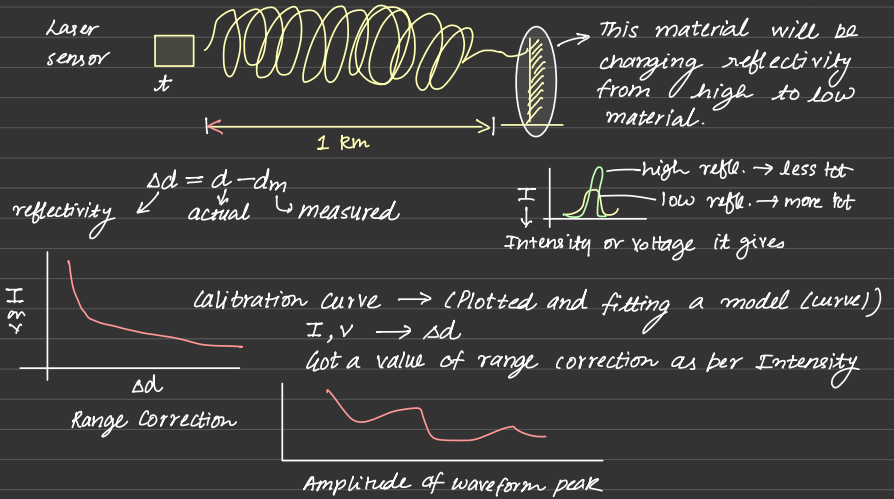 Laser
sensor
t
1 km
This material will be
changing reflectivity
from high to low
material.
Δd = d - dm
reflectivity
actual
measured
I
high refle. → less tot
low refle. → more tot
Intensity or voltage it gives
I or V
Δd
Range Correction
Calibration curve → (Plotted and fitting a model (curve))
I, V → Δd
Got a value of range correction as per Intensity
Amplitude of waveform peak